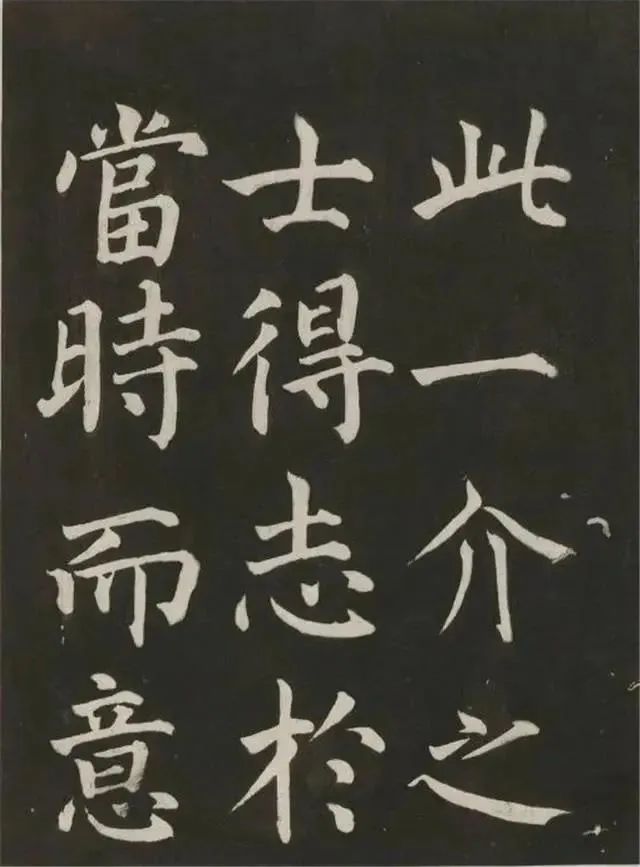 此一介之
士得志於
當時而意